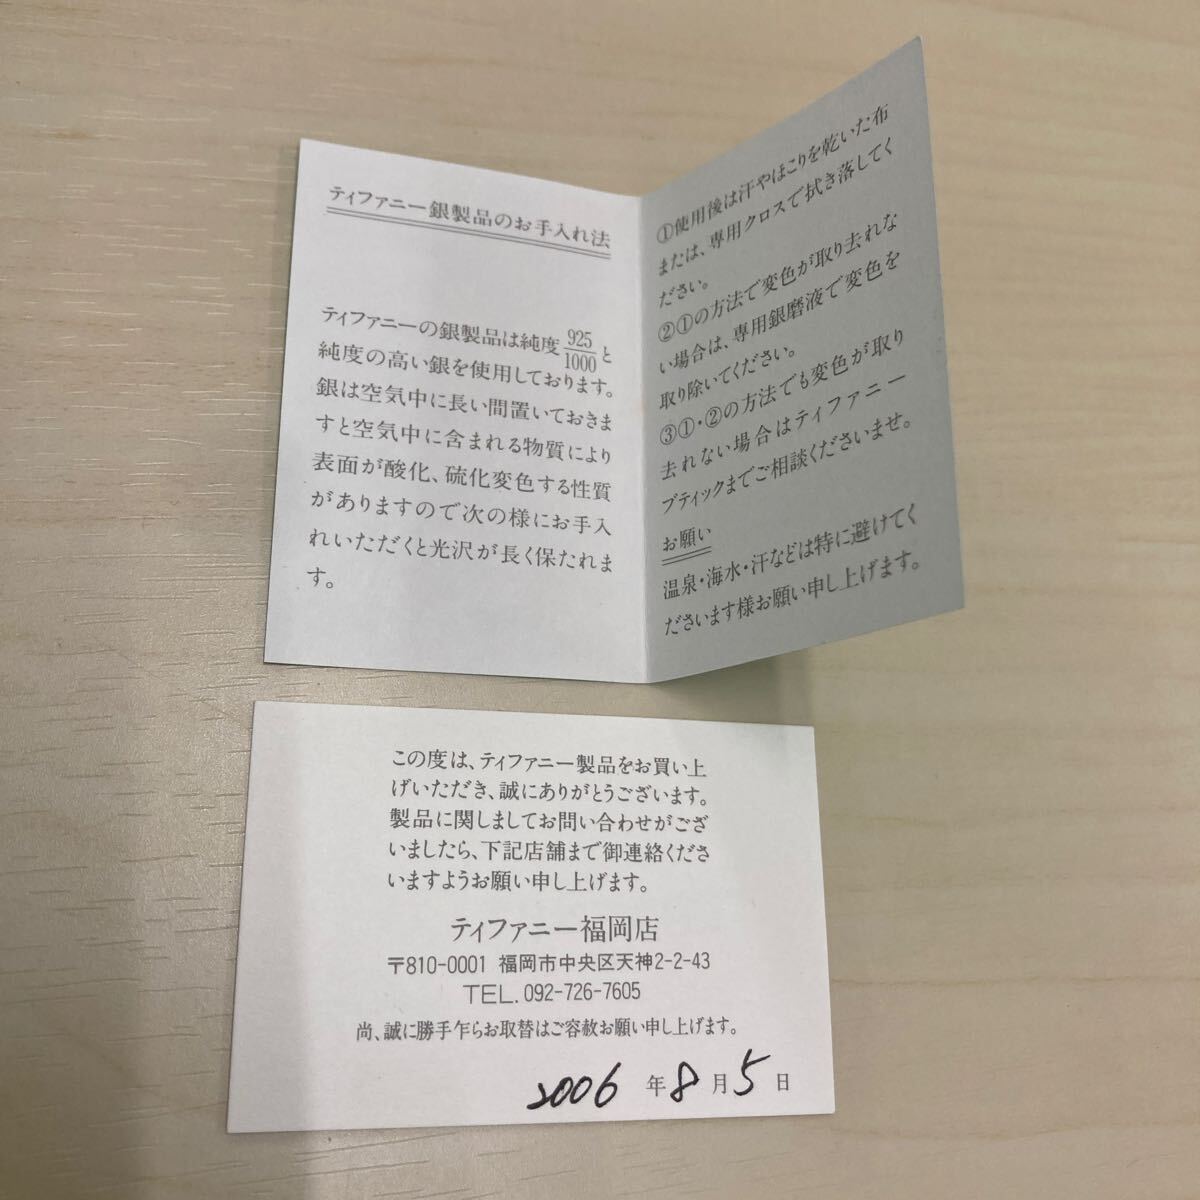 ティファニー銀製品のお手入れ法
ティファニーの銀製品は純度925/1000と
純度の高い銀を使用しております。
銀は空気中に長い間置いておきま
すと空気中に含まれる物質により
表面が酸化、硫化変色する性質
がありますので次の様にお手入
れいただくと光沢が長く保たれま
す。
①使用後は汗やほこりを乾いた布
または、専用クロスで拭き落してく
ださい。
②①の方法で変色が取り去れな
い場合は、専用銀磨液で変色を
取り除いてください。
③①・②の方法でも変色が取り
去れない場合はティファニー
ブティックまでご相談くださいませ。
お願い
温泉・海水・汗などは特に避けてく
ださいます様お願い申し上げます。
この度は、ティファニー製品をお買い上
げいただき、誠にありがとうございます。
製品に関しましてお問い合わせがござ
いましたら、下記店舗まで御連絡くださ
いますようお願い申し上げます。
ティファニー福岡店
〒810-0001 福岡市中央区天神2-2-43
TEL. 092-726-7605
尚、誠に勝手乍らお取替はご容赦お願い申し上げます。
2006 年 8 月 5 日